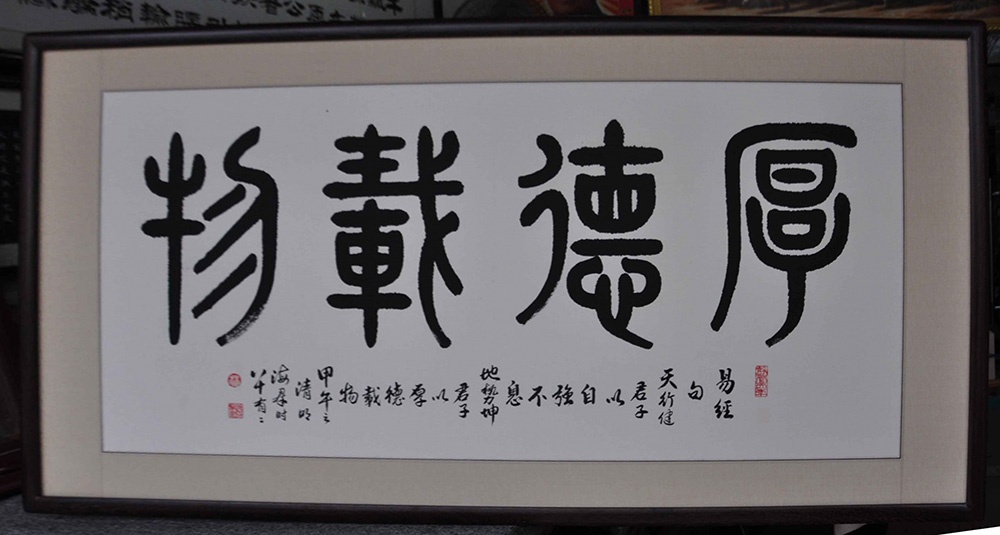 厚德載物
易經
句
天行健
君子
以
自
強
不
息
地勢坤
君子
以
厚
德
載
物
甲午之
清明